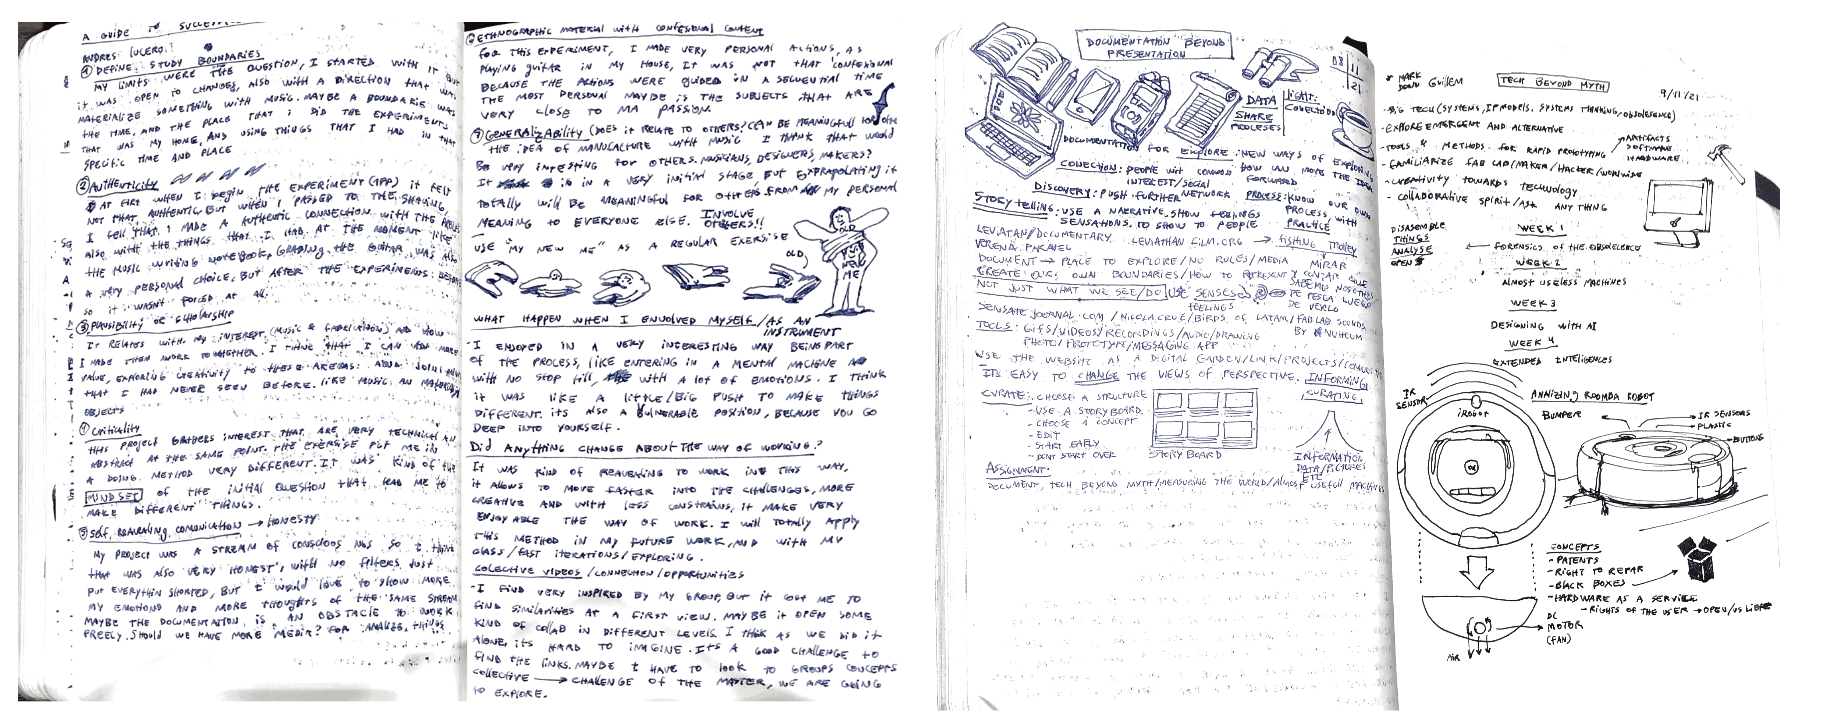 A GUIDE TO
ANDRES LUCERO.
① DEFINE STUDY BOUNDARIES
MY LIMITS WERE THE QUESTION, I STARTED WITH IT BUT
IT WAS OPEN TO CHANGES, ALSO WITH A DIRECTION THAT WAS
MATERIALIZE SOMETHING WITH MUSIC. MAYBE A BOUNDARIE WAS
THE TIME, AND THE PLACE THAT I DID THE EXPERIMENTS
THAT WAS MY HOME, AND USING THINGS THAT I HAD IN THAT
SPECIFIC TIME AND PLACE
② AUTHENTICITY
AT FIRST WHEN I BEGIN THE EXPERIMENT (1PP) IT FELT
NOT THAT AUTHENTIC, BUT WHEN I PASSED TO THE
I FELL THAT I MADE A AUTHENTIC CONNECTION WITH THE
ALSO WITH THE THINGS THAT I HAD AT THE MOMENT LIKE
THE MUSIC WRITING NOTEBOOK, GRABING THE GUITAR, WAS ALSO
A VERY PERSONAL CHOICE, BUT AFTER THE EXPERIMENTS
SO IT WASN'T FORCED AT ALL
③ PLAUSIBILITY OF SCHOLARSHIP
IT RELATES WITH MY INTEREST (MUSIC & FABRICATION) AND HOW
I MADE THEN WORK TOGHETHER. I THINK THAT I CAN ADD MORE
VALUE, EXPLORING CREATIVITY TO THESE AREAS:
THAT I HAD NEVER SEEN BEFORE. LIKE MUSIC AN
OBJECTS
④ CRITICALITY
THIS PROJECT GATHERS INTEREST THAT ARE VERY TECHNICAL AN
ABSTRACT AT THE SAME POINT. THE EXERSISE PUT ME IN
A DOING METHOD VERY DIFFERENT. IT WAS KIND OF THE
MINDSET OF THE INITIAL QUESTION THAT LEAD ME TO
MAKE DIFFERENT THINGS.
⑤ SELF REAVEALING COMUNICATION → HONESTY
MY PROJECT WAS A STREAM OF CONSCIOUSNESS SO I THINK
THAT WAS ALSO VERY HONEST, WITH NO FILTERS JUST
PUT EVERYTHIN SHORTED, BUT I WOULD LOVE TO SHOW MORE
MY EMOTIONS AND MORE THOUGHTS OF THE SAME STREAM
MAYBE THE DOCUMENTATION IS AN OBSTACLE TO WORK
FREELY. SHOULD WE HAVE MORE MEDIA? FOR ANALIZE THINGS
⑥ ETHNOGRAPHIC MATERIAL WITH CONFESIONAL CONTENT
FOR THIS EXPERIMENT, I MADE VERY PERSONAL ACTIONS, AS
PLAYING GUITAR IN MY HOUSE, IT WAS NOT THAT CONFESIONAL
BECAUSE THE ACTIONS WERE GUIDED IN A SEQUENTIAL TIME
THE MOST PERSONAL MAYBE IS THE SUBJECTS THAT ARE
VERY CLOSE TO MA PASSION.
⑦ GENERALIZABILITY (DOES IT RELATE TO OTHERS? CAN BE MEANINGFULL FOR OTHE
THE IDEA OF MANUFACTURE WITH MUSIC I THINK THAT WOULD
BE VERY INTERESTING FOR OTHERS. MUSICIANS, DESIGNERS, MAKERS?
IT IS IN A VERY INITIAL STAGE BUT EXTRAPOLATING IT
TOTALLY WILL BE MEANINGFUL FOR OTHERS FROM MY PERSONAL
MEANING TO EVERYONE ELSE. INVOLVE
OTHERS!!
USE "MY NEW ME" AS A REGULAR EXERSISE
OLD
OLD
NEW
ME
WHAT HAPPEN WHEN I ENVOLVED MYSELF / AS AN
INSTRUMENT
- I ENJOYED IN A VERY INTERESTING WAY BEING PART
OF THE PROCESS, LIKE ENTERING IN A MENTAL MACHINE
WITH NO STOP TILL, WITH A LOT OF EMOTIONS. I THINK
IT WAS LIKE A LITTLE/BIG PUSH TO MAKE THINGS
DIFFERENT. ITS ALSO A VULNERABLE POSITION, BECAUSE YOU GO
DEEP INTO YOURSELF.
DID ANYTHING CHANGE ABOUT THE WAY OF WORKING?
IT WAS KIND OF REAVEALING TO WORK IN THIS WAY,
IT ALLOWS TO MOVE FASTER INTO THE CHALLENGES, MORE
CREATIVE AND WITH LESS CONSTRAINS, IT MAKE VERY
ENJOYABLE THE WAY OF WORK. I WILL TOTALLY APPLY
THIS METHOD IN MY FUTURE WORK, AND WITH MY
CLASS/FAST ITERATIONS/EXPLORING.
COLECTIVE VIDEOS / CONNECTION / OPORTUNITIES
- I FIND VERY INSPIRED BY MY GROUP, BUT IT COST ME TO
FIND SIMILARITIES AT A FIRST VIEW. MAYBE IT OPEN SOME
KIND OF COLLAB IN DIFFERENT LEVELS. I THINK AS WE DID IT
ALONE, ITS HARD TO IMAGINE. ITS A GOOD CHALLENGE TO
FIND THE LINKS. MAYBE I HAVE TO LOOK TO GROUPS CONCEPTS
COLLECTIVE → CHALLENGE OF THE MASTER, WE ARE GOING
TO EXPLORE.
DOCUMENTATION BEYOND
PRESENTATION
08 | 11
| 21
DATA
SHARE
PROCESES
CONECTION
DOCUMENTATION FOR EXPLORE: NEW WAYS OF EXPLORE
CONECTION: PEOPLE WIT COMMON HOW CAN MOVE THE IDEA
INTEREST/SOCIAL FORWARD
DISCOVERY: PUSH FURTHER NETWORK PROCESS: KNOW OUR OWN
STORY TELLING: USE A NARRATIVE. SHOW FEELINGS PROCESS, WITH
SENSATIONS. TO SHOW TO PEOPLE PRACTICE
LEVIATAN/DOCUMENTARY LEVIATHAN FILM.ORG → FISHING TROLLEY
VERENA PARAVEL
DOCUMENT → PLACE TO EXPLORE/NO RULES/MEDIA MIRAR
CREATE OUR OWN BOUNDARIES/HOW TO REPRESENT Y CONTAR QUE
SABEMU NOSOTROS
NOT JUST WHAT WE SEE/DO USE SENSES DE PESCA LUEGO
FEELINGS DE VERLO
SENSATE JOURNAL.COM / NICOLA CRUZ/BIRDS OF LATAM/FABLAB SOUNDS
TOOLS: GIFS/VIDEOS/RECORDINGS/AUDIO/DRAWING
PHOTO/PROTOTYPE/MESSAGING APP
USE THE WEBSITE AS A DIGITAL GARDEN/LINK/PROJECTS/
ITS EASY TO CHANGE THE VIEWS OF PERSPECTIVE. INFORMING
CURATING
CURATE: - CHOOSE A STRUCTURE
- USE A STORYBOARD
- CHOOSE A CONCEPT
- EDIT
- START EARLY
- DONT START OVER
STORY BOARD
INFORMATION
DATA/PICTURES
ETC
ASSIGNMENT.
DOCUMENT, TECH BEYOND MYTH/MEASURING THE WORLD/ALMOST USEFULL MACHINES
* MARK
DOWN GUILLEM
TECH BEYOND MYTH
9/11/21
- BIG TECH (SYSTEMS, IP MODELS, SYSTEMS THINKING/OBSOLESENCE)
- EXPLORE EMERGENT AND ALTERNATIVE
- TOOLS & METHODS FOR RAPID PROTOTYPING
ARTIFACTS
SOFTWARE
HARDWARE
- FAMILIARIZE FAB LAB/MAKER/HACKER/WORLDWIDE
- CREATIVITY TOWARDS TECHNOLOGY
- COLLABORATIVE SPIRIT/ASK ANY THING
DISASEMBLE
THINGS
ANALYSE
OPEN
WEEK 1
FORENSICS OF THE OBSOLECENCE
WEEK 2
ALMOST USELESS MACHINES
WEEK 3
DESIGNING WITH AI
WEEK 4
EXTENDED INTELIGENCES
IR
SENSOR
iRobot
ANALIZING ROOMBA ROBOT
BUMPER
IR SENSORS
PLASTIC
BUTTONS
CONCEPTS
- PATENTS
- RIGHT TO REPAIR
- BLACK BOXES
- HARDWARE AS A SERVICE
- RIGHTS OF THE USER → OPEN/US LIBRE
DC
MOTOR
(FAN)
AIR